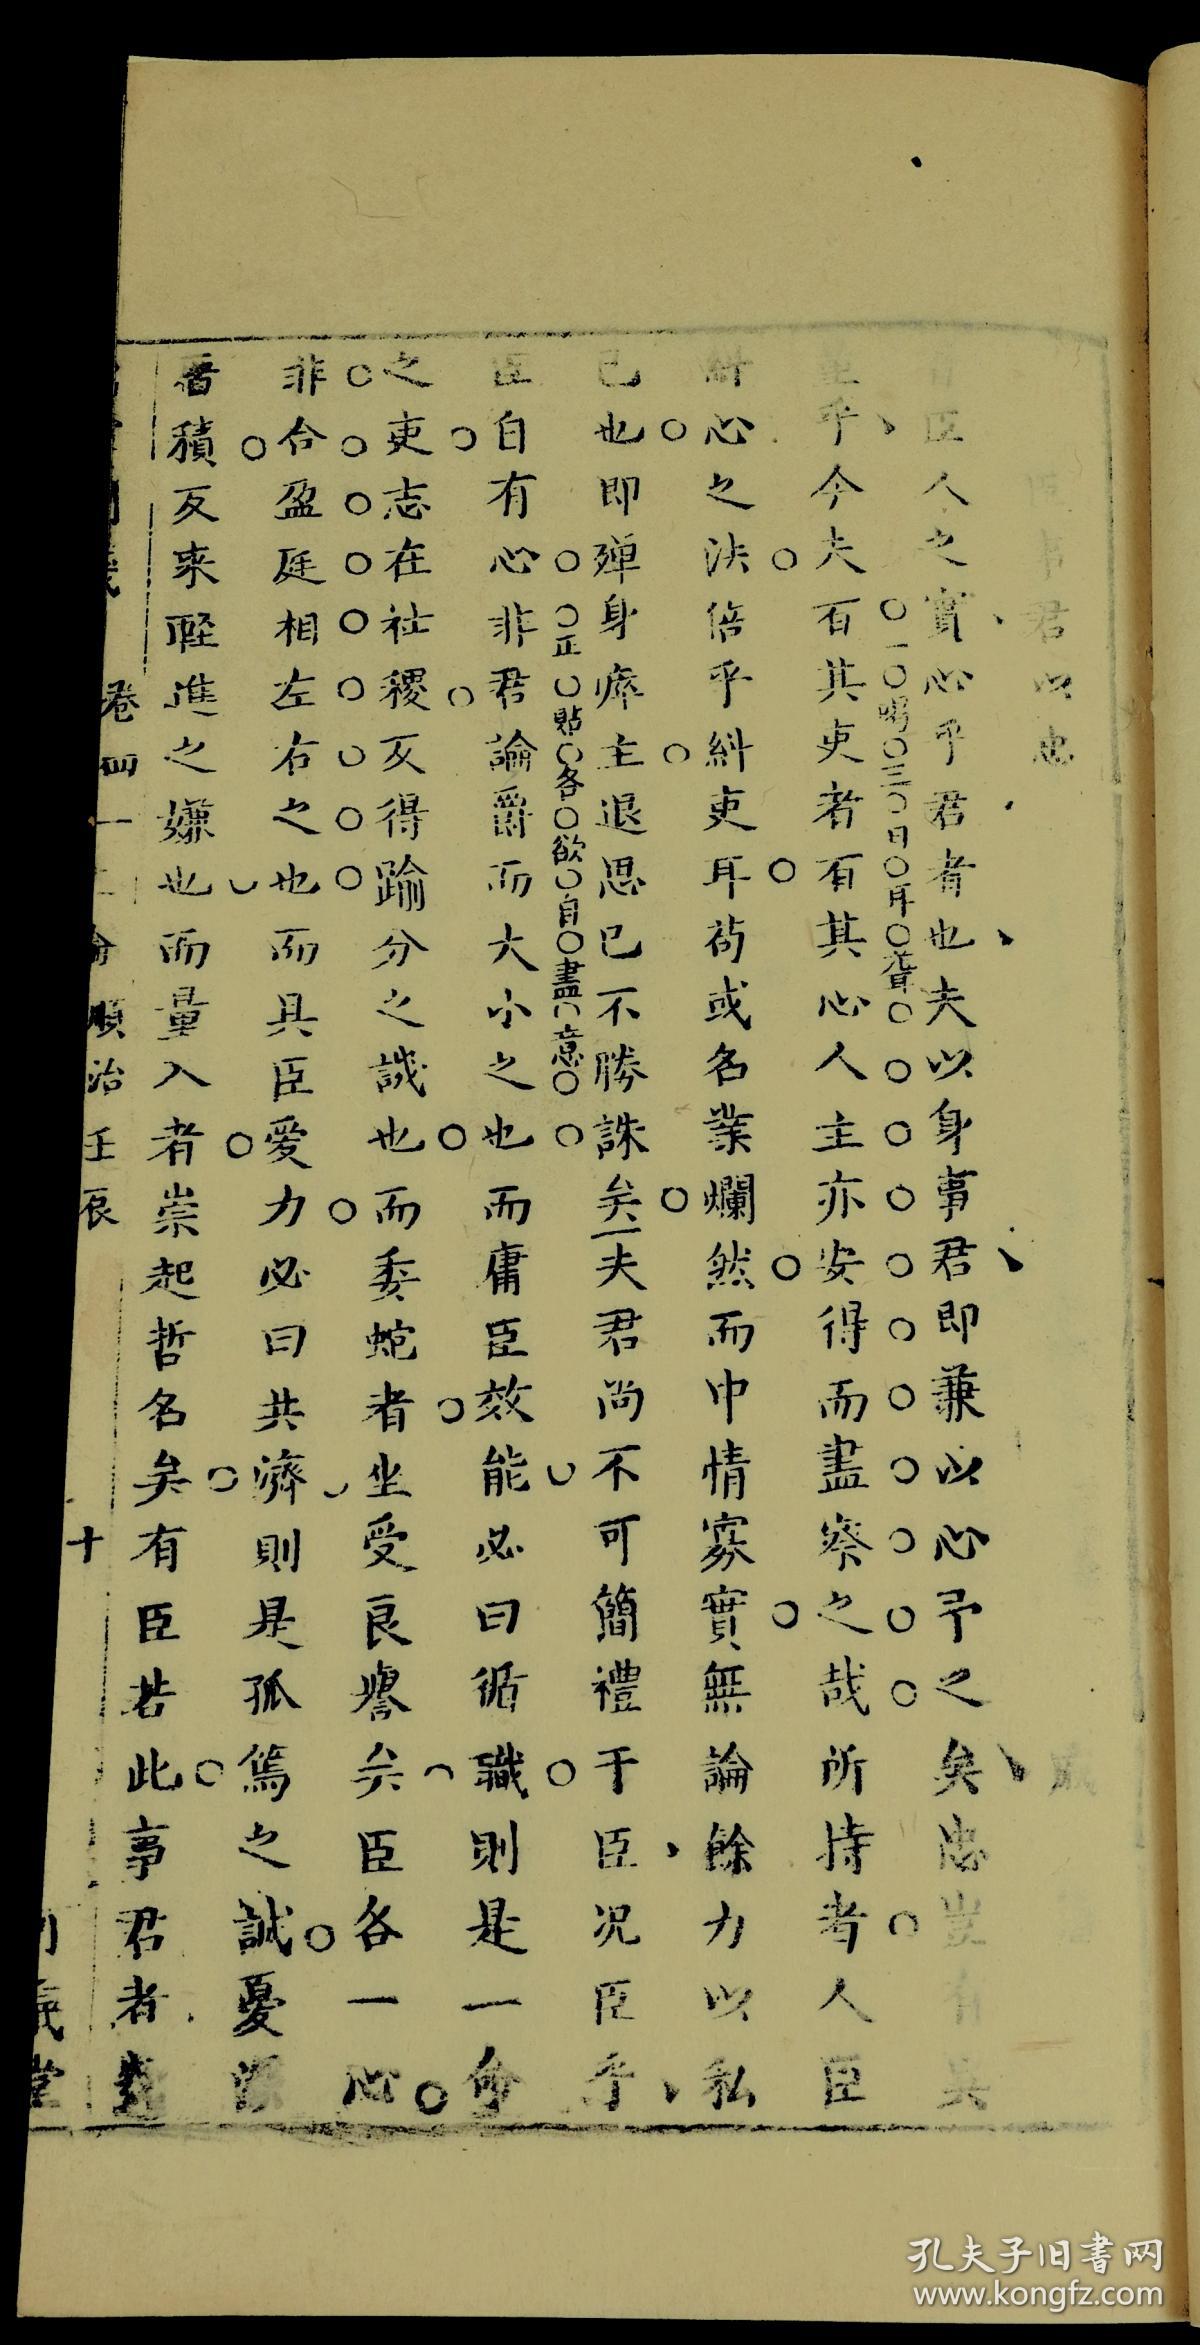 臣事君以忠
臣人之實心乎君者也夫以身事君即兼以心予之矣忠豈有異
乎今夫有其吏者有其心人主亦安得而盡察之哉所持者人臣
〇一〇喝〇三〇日〇耳〇聾〇
糾心之法倍乎糾吏耳苟或名業爛然而中情寡實無論餘力以私
已也即殫身瘁主退思已不勝誅矣夫君尚不可簡禮于臣况臣乎
〇正〇點〇各〇欲〇自〇盡〇意〇
臣自有心非君論爵而大小之也而庸臣效能必曰循職則是一命
之吏志在社稷反得踰分之譏也而委蛇者坐受良譽矣臣各一心
非合盈庭相左右之也而具臣愛力必曰共濟則是孤篤之誠憂深
積反來驟進之嫌也而量入者崇起哲名矣有臣若此事君者
卷四 一 二論順治壬辰 十
孔夫子旧书网
www.kongfz.com